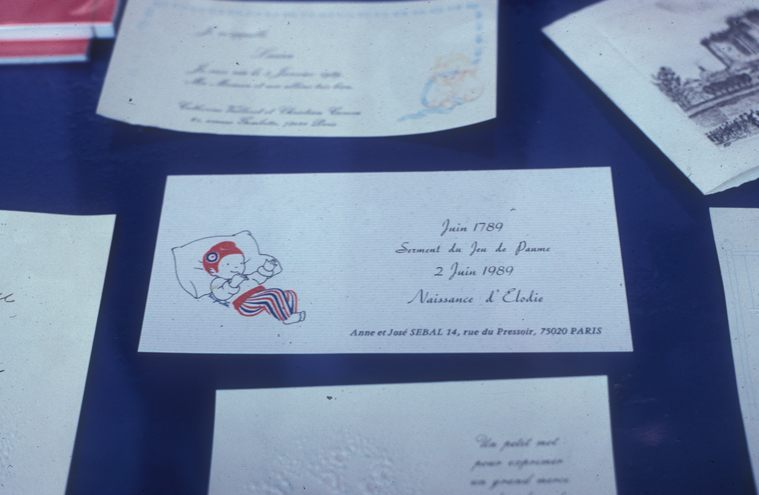 Je m'appelle
Catherine et Christian
75020 Paris
Juin 1789
Serment du Jeu de Paume
2 Juin 1989
Naissance d'Elodie
Anne et José SEBAL 14, rue du Pressoir, 75020 PARIS
Un petit mot
pour exprimer
un grand merci